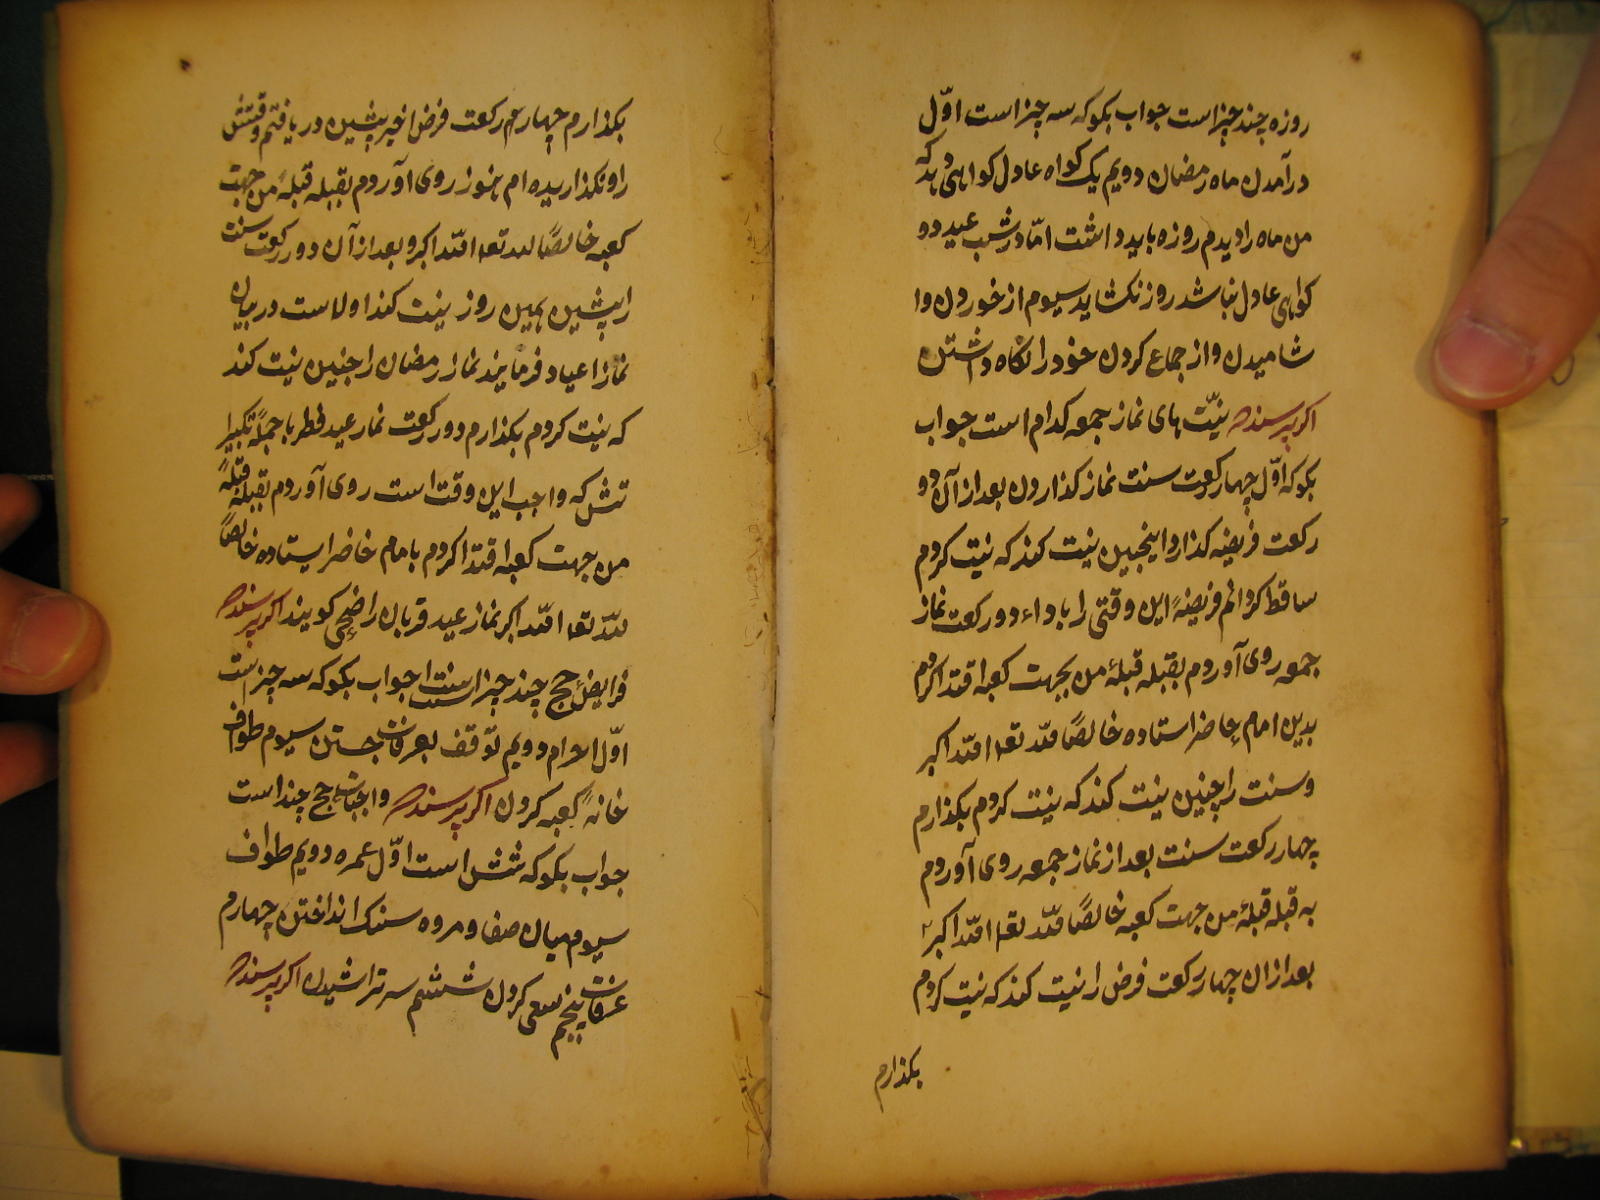 روزه چند چیز است جواب بکو که سه چیز است اوّل
درآمدن ماه رمضان دویم یک کواه عادل کواهی دهد که
من ماه را دیدم روزه باید داشت امّا در شب عید دو
کواهی عادل نباشد روز نکشاید سیوم از خوردن وا
شامیدن و از جماع کردن خود را نکاه داشتن
اکر پرسند که نیّت های نماز جمعه کدام است جواب
بکو که اوّل چهار رکعت سنت نماز کذاردن بعد از آن دو
رکعت فریضه کذارد اینچنین نیت کند که نیت کردم
ساقط کردانم فریضهٔ این وقتی را باداء دو رکعت نماز
جمعه روی آوردم بقبله قبلهٔ من بجهت کعبه اقتدا کردم
بدین امام حاضر استاده خالصًا للّه تعا اللّه اکبر
و سنت را چنین نیت کند که نیت کردم بکذارم
چهار رکعت سنت بعد از نماز جمعه روی آوردم
به قبله قبلهٔ من جهت کعبه خالصًا للّه تعا اللّه اکبر
بعد از ان چهار رکعت فرض را نیت کند که نیت کردم
بکذارم
بکذارم چهارم رکعت فرض اخیر پشین دریافتم وقتش
را و نکذاریده ام هنوز روی آوردم بقبله قبلهٔ من جهت
کعبه خالصًا لله تعا اللّه اکبر و بعد از آن دو رکعت سنت
را پشین همین روز نیت کند اولاست در بیان
نماز اعیاد فرمایند نماز رمضان را چنین نیت کند
که نیت کردم بکذارم دو رکعت نماز عید فطر با جملهٔ تکبیرا
تش که واجب این وقت است روی آوردم بقبله قبلهٔ
من جهت کعبه اقتدا کردم بامام حاضر ایستاده خالصًا
للّه تعا اللّه اکبر نماز عید قربان را ضحی کویند اکر پرسند که
فرایض حج چند چیز است جواب بکو که سه چیز است
اوّل احرام دویم توقف بعرفات جستن سیوم طواف
خانهٔ کعبه کردن اکر پرسند که واجبات حج چند است
جواب بکو که شش است اوّل عمره دویم طواف
سیوم میان صفا و مروه سنک انداختن چهارم
عرفات پنجم سعی کردن ششم سر تراشیدن اکر پرسند که